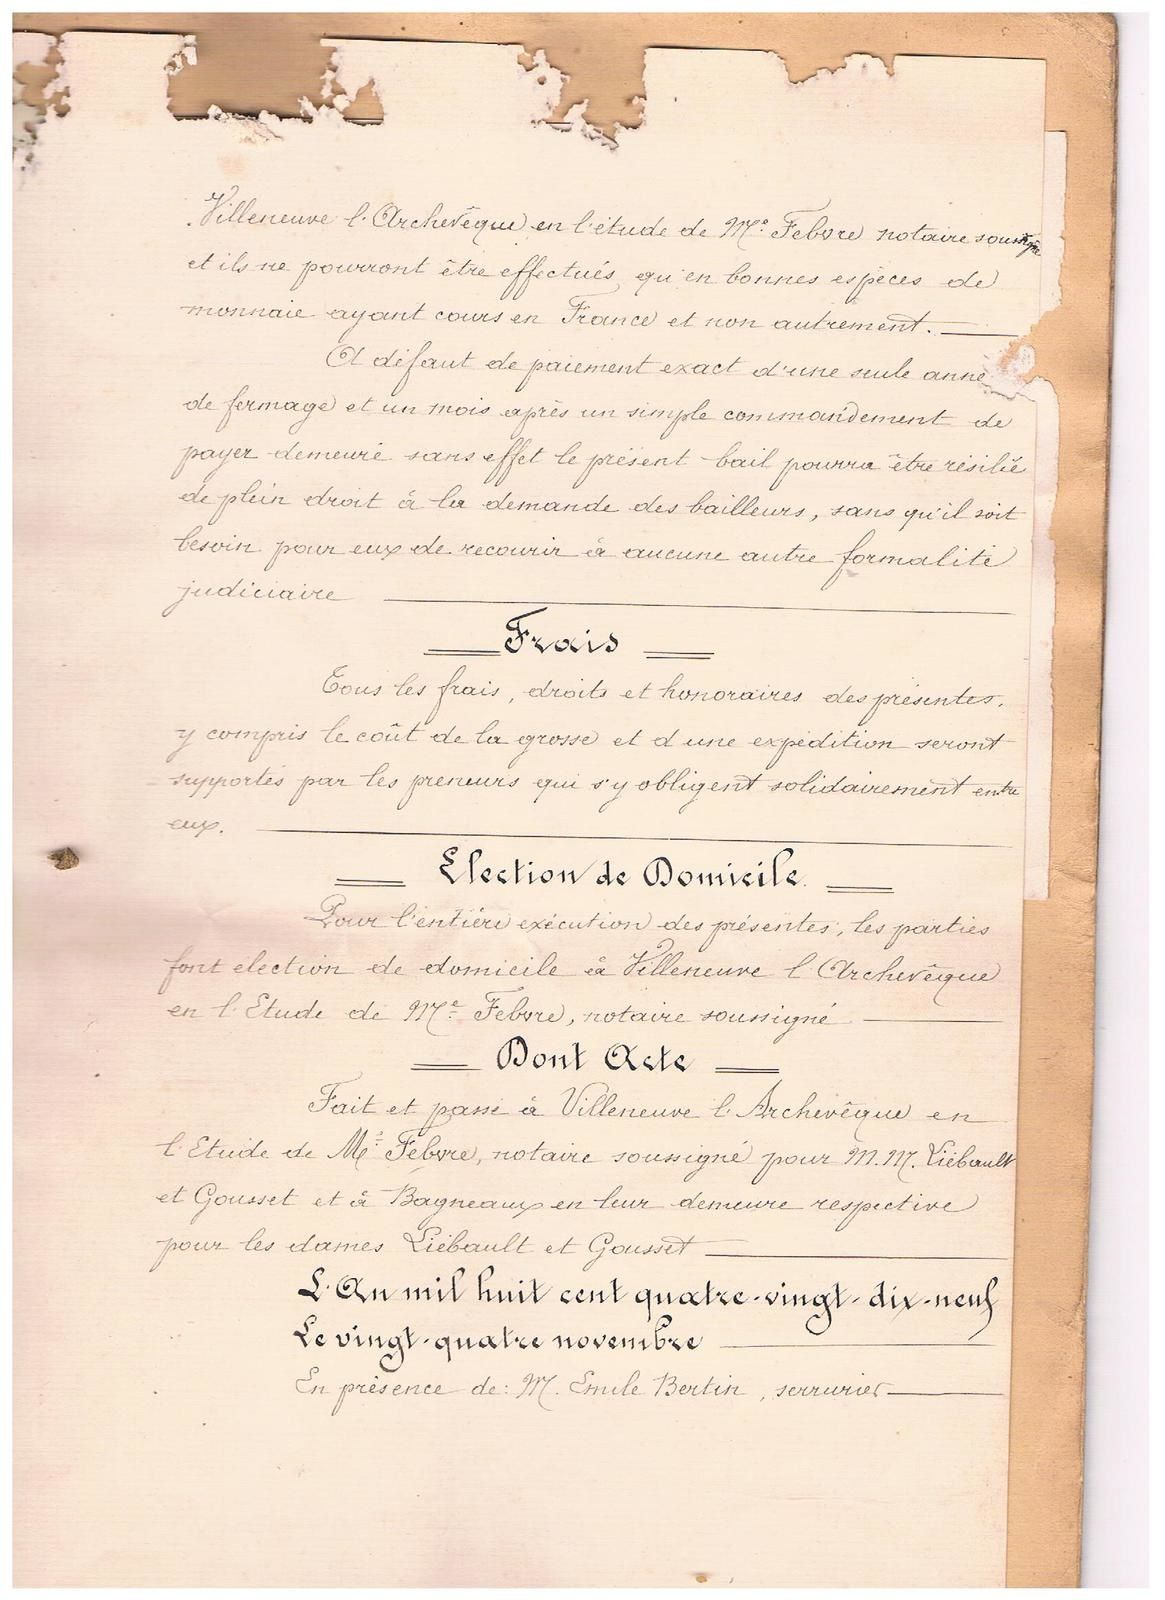 Villeneuve l'Archevêque en l'étude de Me Febvre notaire soussigné
et ils ne pourront être effectués qu'en bonnes espèces de
monnaie ayant cours en France et non autrement.
A défaut de paiement exact d'une seule anné
de fermage et un mois après un simple commandement de
payer demeuré sans effet le présent bail pourra être résilié
de plein droit à la demande des bailleurs, sans qu'il soit
besoin pour eux de recourir à aucune autre formalité
judiciaire
Frais
Tous les frais, droits et honoraires des présentes,
y compris le coût de la grosse et d'une expédition seront
supportés par les preneurs qui s'y obligent solidairement entre
eux.
Election de Domicile.
Pour l'entière exécution des présentes, les parties
font election de domicile à Villeneuve l'Archevêque
en l'Etude de Me Febvre, notaire soussigné
Dont Acte
Fait et passé à Villeneuve l'Archevêque en
l'Etude de Me Febvre, notaire soussigné pour M.M. Liébault
et Gousset et à Bagneaux en leur demeure respective
pour les dames Liébault et Gousset
L'An mil huit cent quatre-vingt-dix-neuf
Le vingt-quatre novembre
En présence de: M. Emile Bertin, serrurier